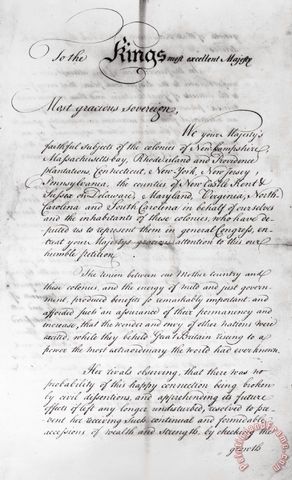 To the Kings most excellent Majesty
Most gracious Sovereign,
We your Majesty's
faithful subjects of the colonies of Newhampshire,
Massachusetts bay, Rhode island and Providence
plantations, Connecticut, New York, New Jersey,
Pennsylvania, the counties of New Castle Kent &
Sussex on Delaware, Maryland, Virginia, North
Carolina and South Carolina in behalf of ourselves
and the inhabitants of these colonies, who have de
puted us to represent them in general Congress, en
treat your Majestys gracious attention to this our
humble petition.
The union between our Mother Country and
these colonies, and the energy of mild and just govern
ment, produced benefits so remarkably important, and
afforded such an assurance of their permanency and
increase, that the wonder and envy of other nations were
excited, while they beheld Great Britain riseing to a
power the most extraordinary the world had ever known.
Her rivals observing, that there was no
probability of this happy connection being broken
by civil dissentions, and apprehending its future
effects if left any longer undisturbed, resolved to pre
vent her receiving such continual and formidable
accessions of wealth and strength, by checking the
growth